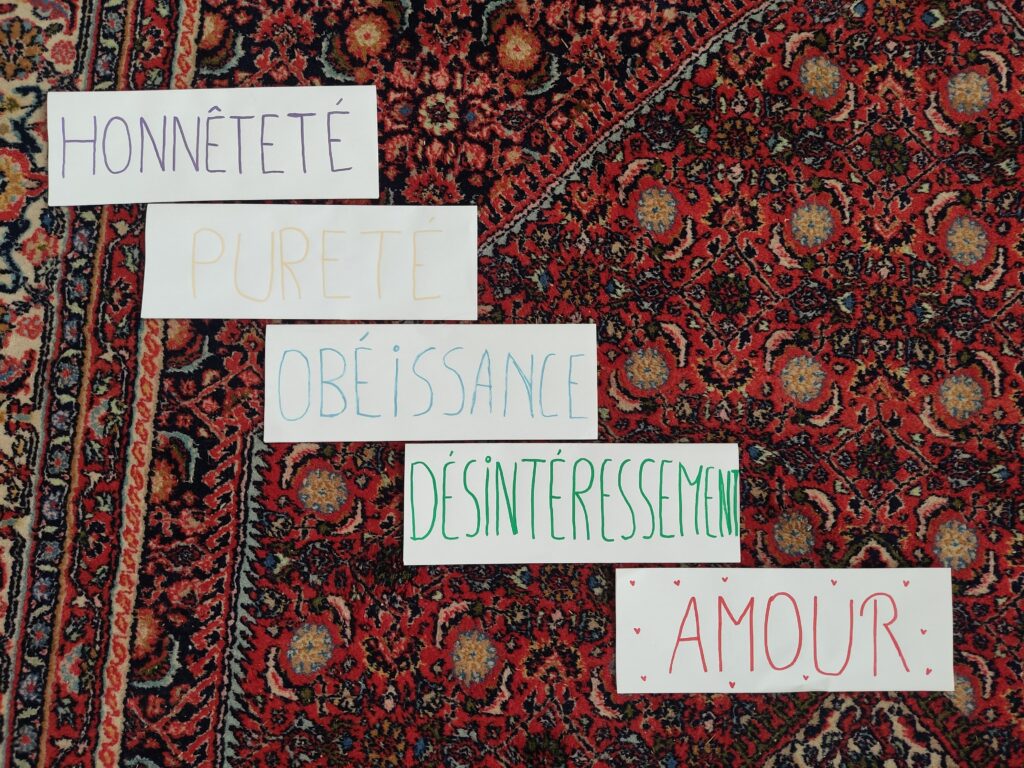 HONNÊTETÉ
PURETÉ
OBÉISSANCE
DÉSINTÉRESSEMENT
AMOUR